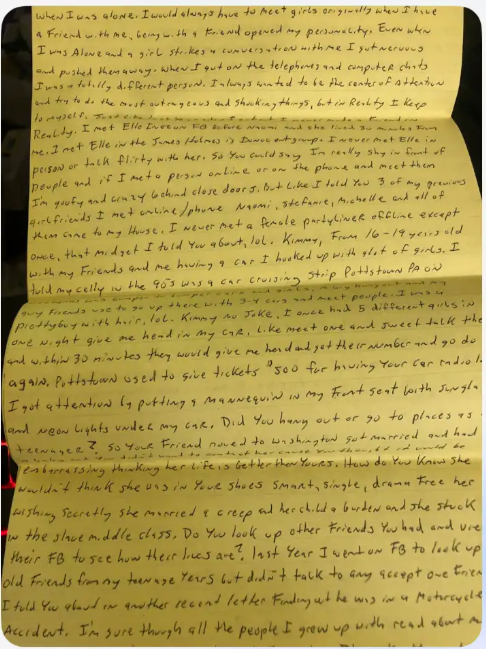 when I was alone. I would always have to meet girls originally when I have
a Friend with me, being with a Friend opened my personality. Even when
I was Alone and a girl strikes a conversation with me I got nervous
and pushed them away. When I got on the telephones and computer chats
I was a totally different person. I always wanted to be the center of Attention
and try to do the most outrageous and shocking things, but in Reality I Keep
to myself.
Reality. I met Elle Evee on FB before Naomi and she lived 30 minutes from
me. I met Elle in the James Holmes is Innocent group. I never met Elle in
person or talk flirty with her. So You could say I'm really shy in front of
people and if I met a person online or on the phone and meet them
I'm goofy and crazy behind close doors, but Like I told You 3 of my previous
girlfriends I met online/phone Naomi, Stefanie, Michelle and all of
them came to my House. I never met a female partyliner offline except
once, that midget I told You about, lol. Kimmy, From 16-19 years old
with my Friends and me having a car I hooked up with alot of girls. I
told my celly in the 90's was a car cruising strip Pottstown PA on
guy Friends use to go up there with 3-4 cars and meet people. I was a
prettyboy with hair, lol. Kimmy no Joke, I once had 5 different girls in
one night give me head in my car. Like meet one and sweet talk the
and within 30 minutes they would give me head and get their number and go do
again. Pottstown used to give tickets $500 for having Your car radio
I got attention by putting a MANNEQUIN in my Front seat with Sungla
and NEON Lights under my car. Did You hang out or go to places as
teenager? So Your Friend moved to Washington got married and had
embarrassing thinking her Life is better than Yours. How do You Know she
wouldn't think she was in Your shoes smart, single, drama Free her
wishing secretly she married a creep and her child a burden and she stuck
in the slave middle class. Do You look up other Friends You had and
their FB to see how their lives are? Last Year I went on FB to look up
old Friends from my teenage Years but didn't talk to any accept one Frien
I told You about in another recent letter Finding out he was in a Motorcycle
Accident. I'm sure though all the people I grew up with read about